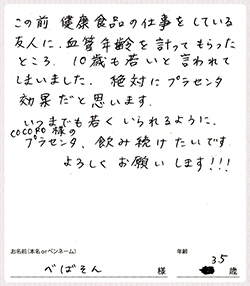 この前 健康食品の仕事をしている
友人に、血管年齢を計ってもらった
ところ、10歳も若いと言われて
しまいました。絶対にプラセンタ
効果だと思います。
いつまでも若くいられるように、
COCORO様の
プラセンタ、飲み続けたいです。
よろしくお願いします!!!
お名前(本名orペンネーム)
年齢
べばそん 様
35 歳